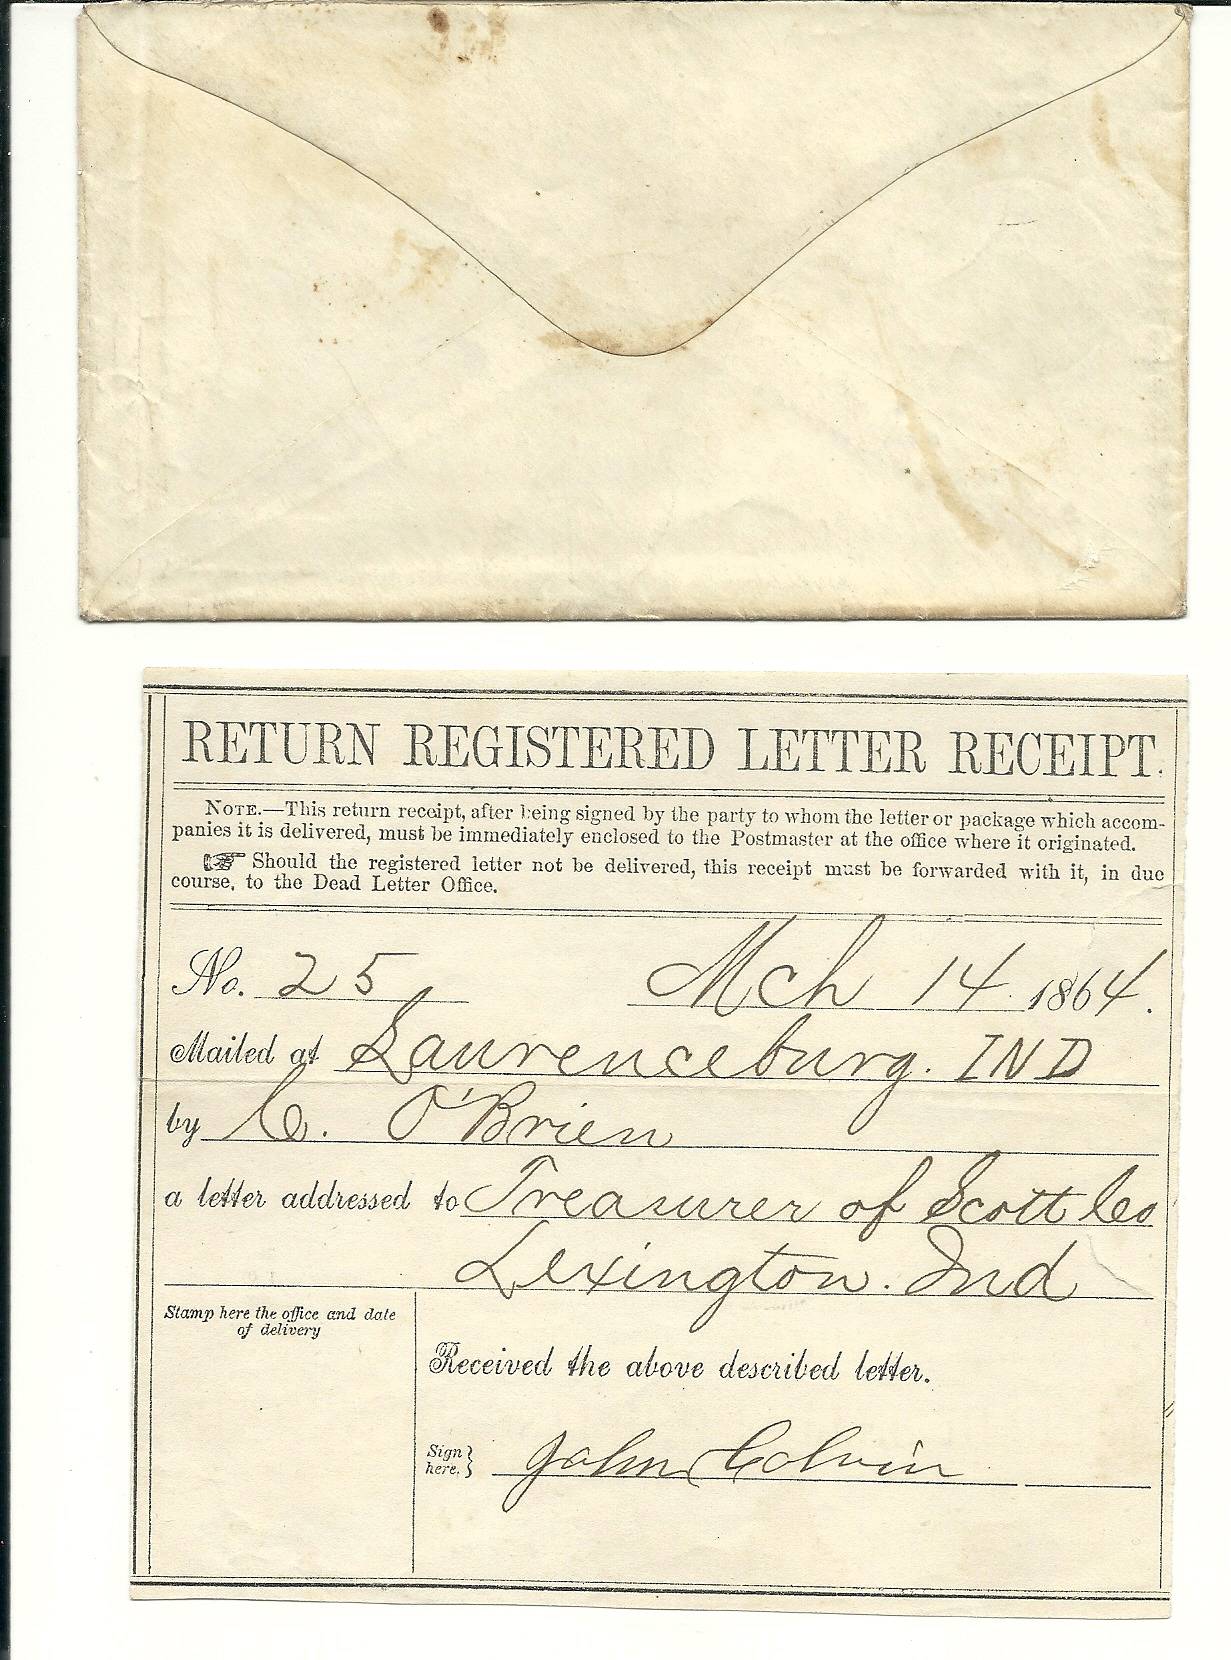 RETURN REGISTERED LETTER RECEIPT.
NOTE.—This return receipt, after being signed by the party to whom the letter or package which accom-
panies it is delivered, must be immediately enclosed to the Postmaster at the office where it originated.
☞ Should the registered letter not be delivered, this receipt must be forwarded with it, in due
course, to the Dead Letter Office.
No. 25 Mch 14 1864.
Mailed at Laurenceburg. IND
by C. O'Brien
a letter addressed to Treasurer of Scott Co
Lexington. Ind
Stamp here the office and date
of delivery
Received the above described letter.
Sign
here. } John Colvin